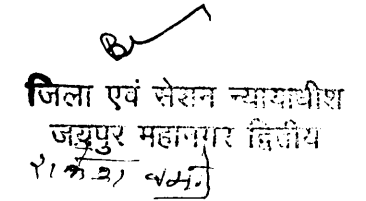 जिला एवं सेशन न्यायाधीश
जयपुर महानगर द्वितीय